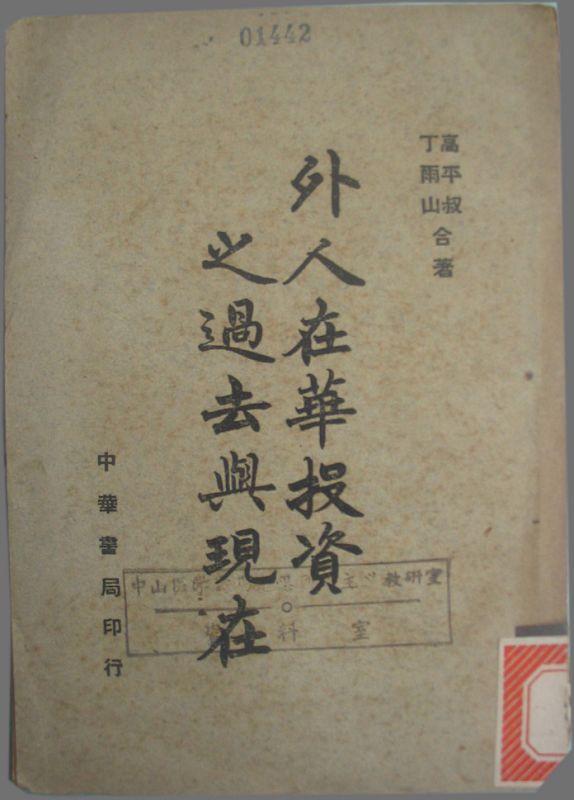 01442
高平叔
丁雨山
合著
外人在華投資
之過去與現在
中華書局印行
中山 教研室
料 室